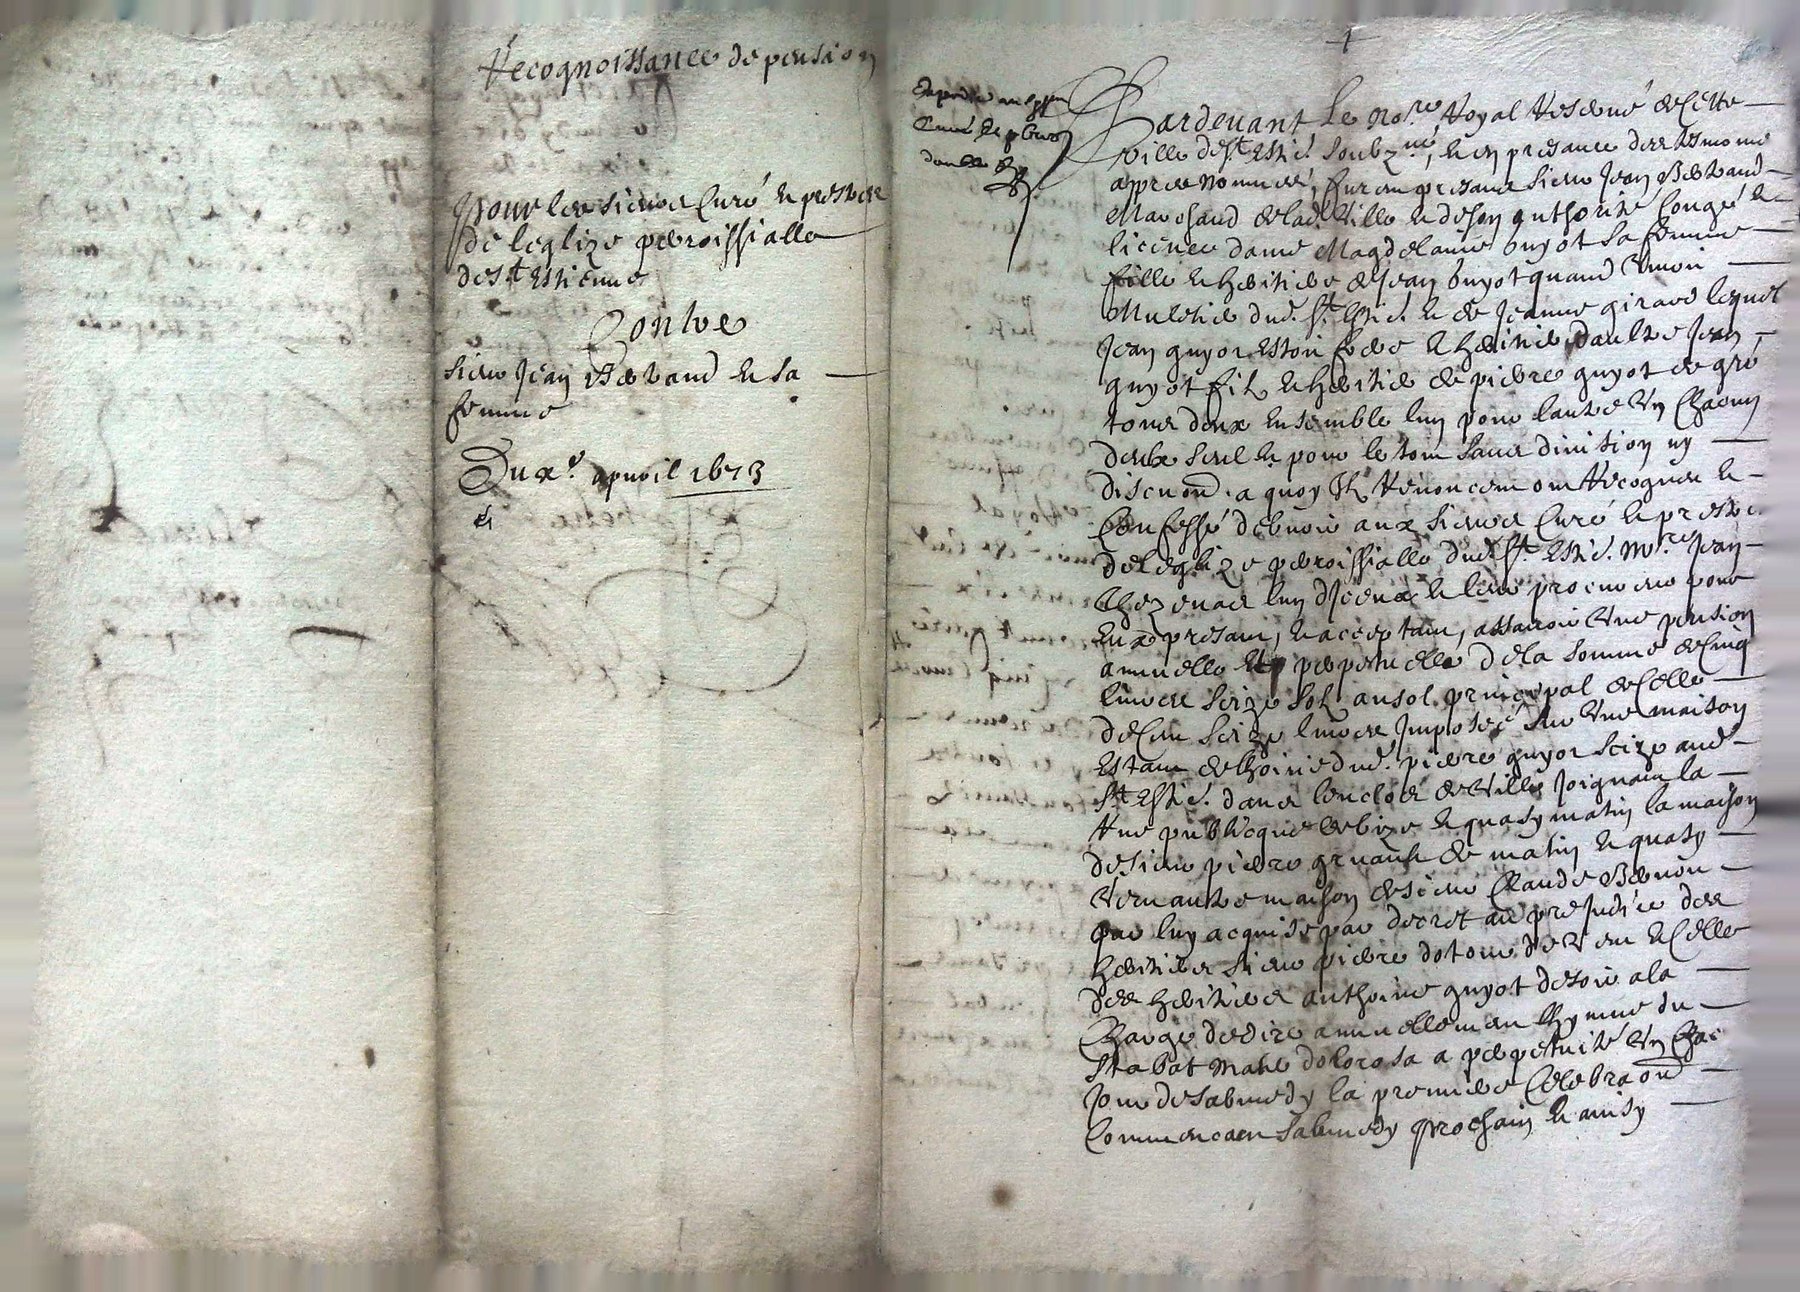 Recognoissance de pension
Pour les sieurs Curé et prestres
de leglize parroissialle
de St Estienne
Contre
sieur Jean Beraud et sa
femme
Du xe apvril 1673
Expedié
Curé et pbres
double
Pardevant le nore Royal Reservé de Cette
ville de St Estie. soubzné, et en presance des tesmoins
apres nommés, furent presans sieur Jean Beraud
Marchand de lad. Ville et de son authorité Congé et
licence dame Magdelaine Guyot sa femme
fille et heritiere de Jean Guyot quand vivoit
dud. St Estie. et de Jeanne girard lequel
Jean guyot estoit frere et heritier daultre Jean
guyot filz et heritier de pierre guyot de gré
tous deux ensemble lun pour lautre Un Chacun
deulx seul et pour le tout sans division ny
discuon. a quoy Ilz Renoncent ont Recogneu et
Confessé debvoir aux sieurs Curé et prestres
de leglize parroissialle dud. St Estie. Mre Jean
Chezenas lun diceux et leur procureur pour
eux presant, et acceptant, assavoir Une pension
annuelle et perpetuelle de la somme de Cinq
livres seize solz au sol principal de Celle
de Cent seize livres Imposée sur Une maison
estant de lhoirie dud. pierre guyot scize aud.
St Estie. dans lenclos de Ville Joignant la
Rue publicque de bize et quasy matin la maison
de sieur pierre de matin et quasy
Vent aultre maison de sieur Claude Bernou
par luy acquise par decret au prejudice des
heritiers sieur pierre de Vent et Celle
des heritiers anthoine guyot de soir a la
Charge de dire annuellement lhymne du
Stabat Mater dolorosa a perpetuité Un Chac
Jour de sabmedy la premiere Celebraon
Commencant sabmedy prochain et ainsy